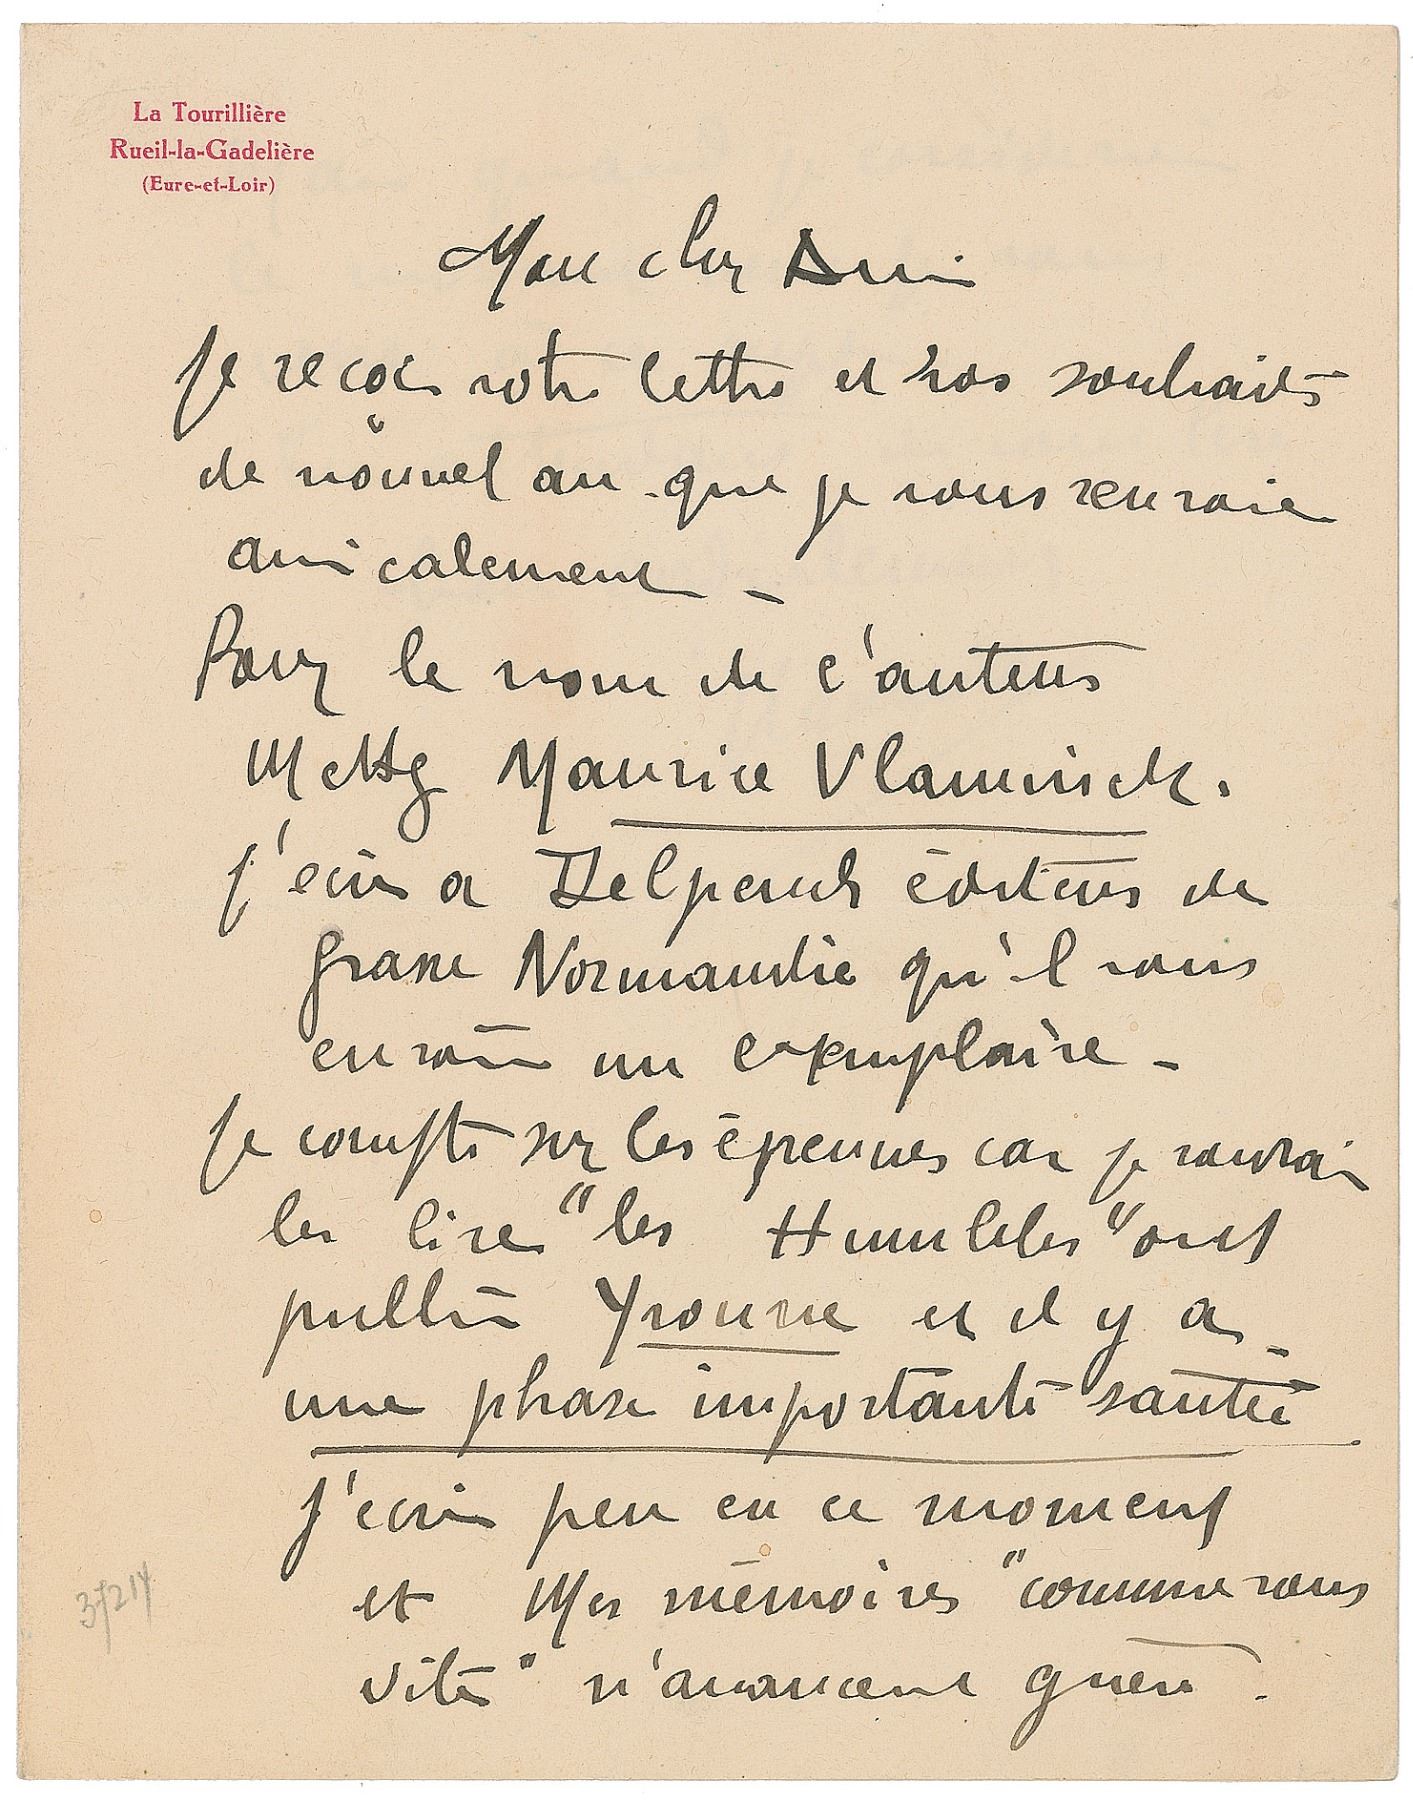 La Tourillière
Rueil-la-Gadelière
(Eure-et-Loir)
Mon cher Ami
Je reçois votre lettre et vos souhaits
de nouvel an que je vous renvoie
amicalement _
Pour le nom de l'auteur
Mettez Maurice Vlaminck.
J'écris a Delpeuch éditeur de
grasse Normandie qu'il vous
envoie un exemplaire _
Je compte sur les épreuves car je voudrais
les lire "les Humbles" ont
publié Yvonne et il y a
une phrase importante sautée
J'écris peu en ce moment
et Mes mémoires "comme vous
vite" n'avancent guère.
37214